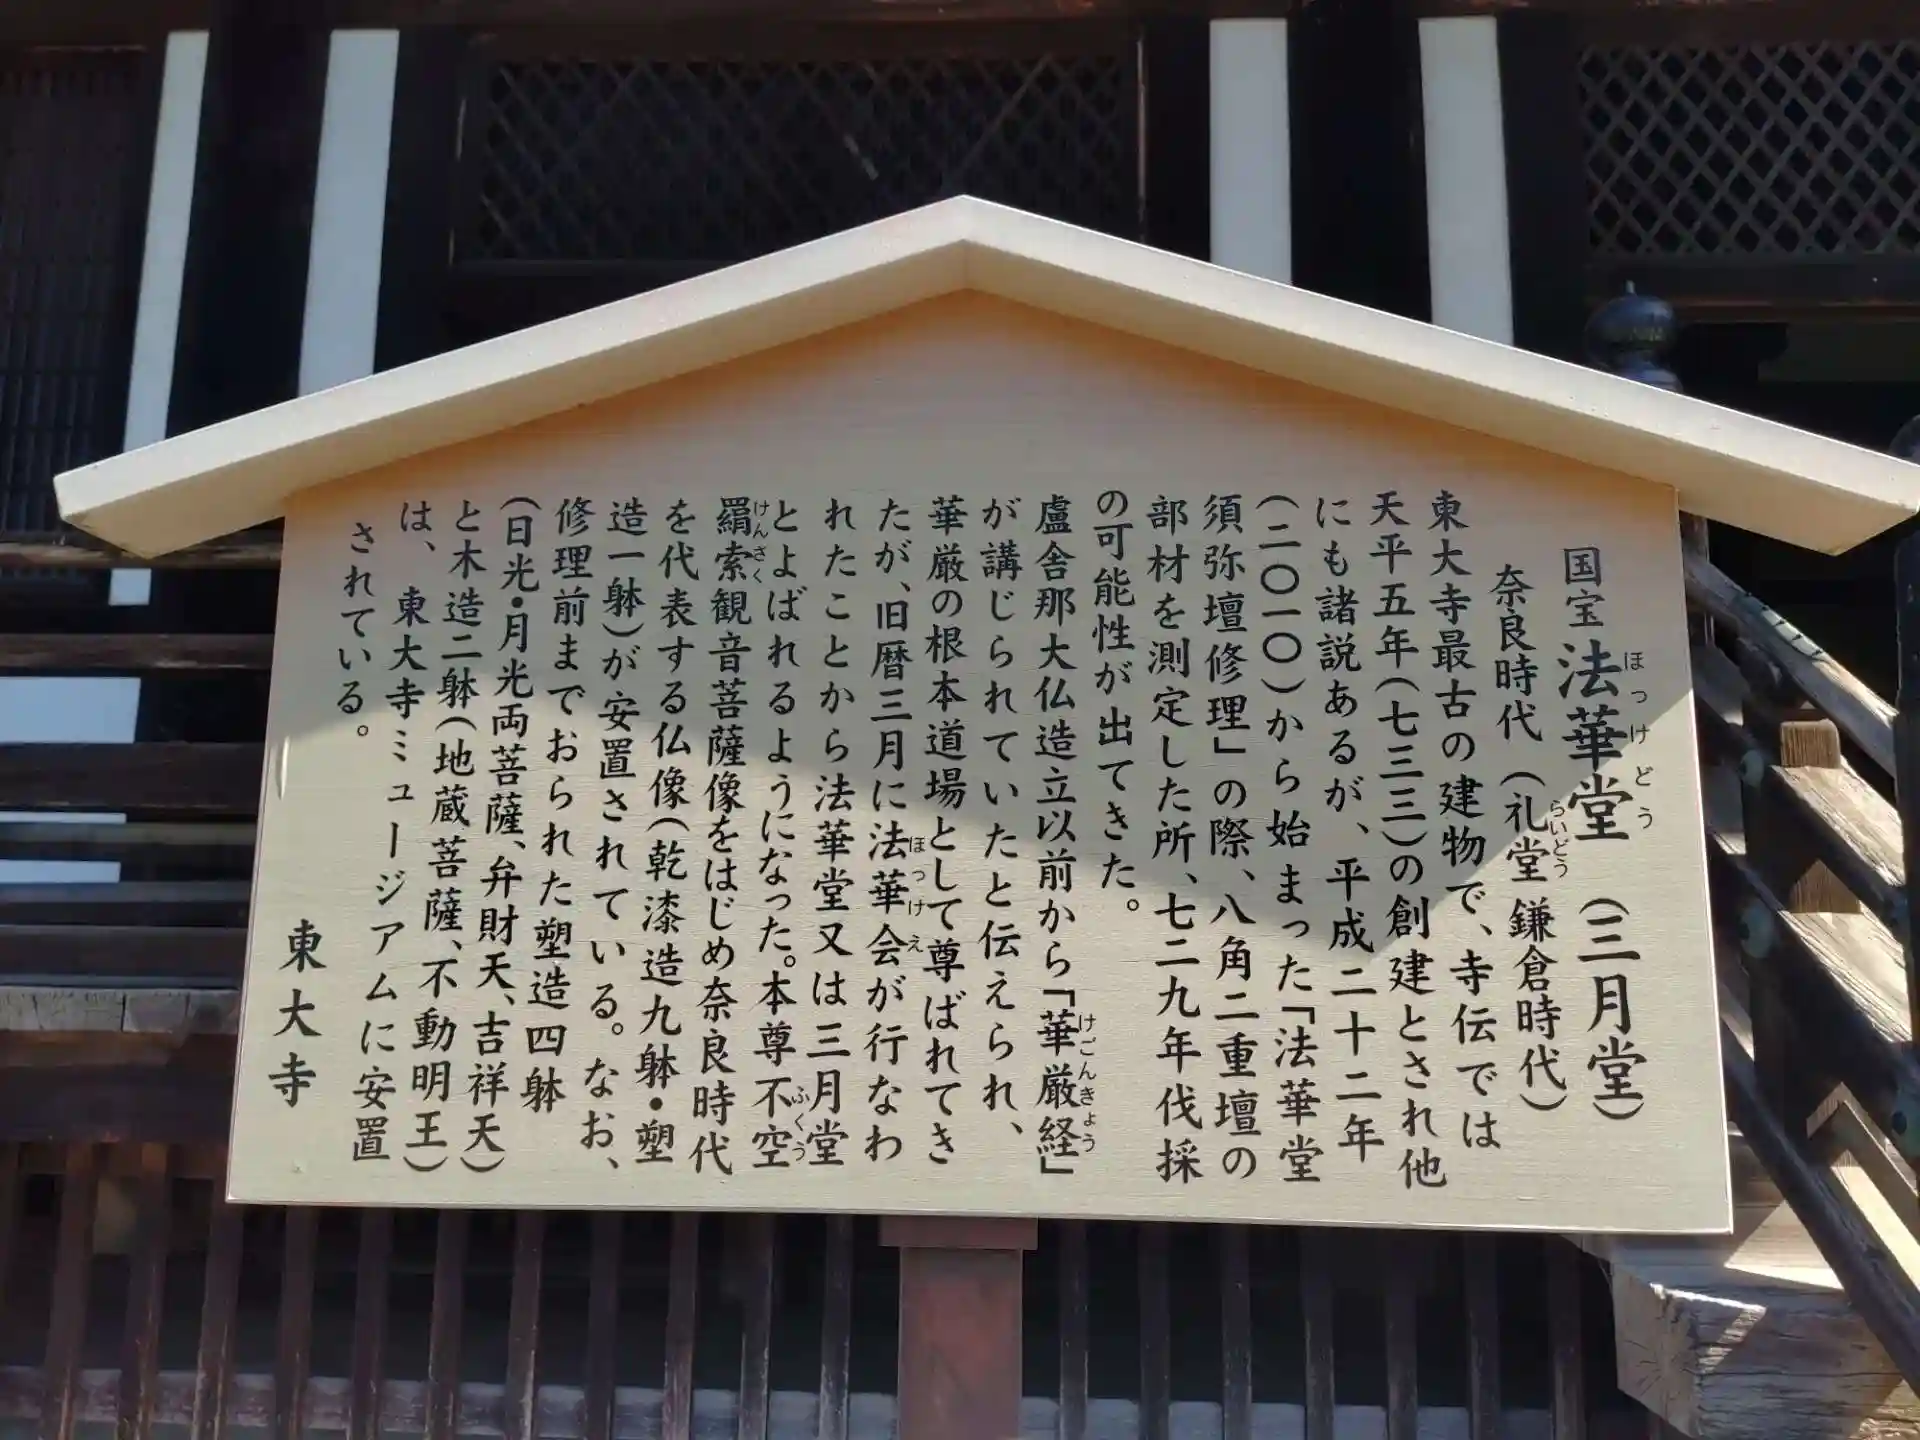 国宝 法華堂（三月堂）
奈良時代（礼堂鎌倉時代）
東大寺最古の建物で、寺伝では
天平五年（七三三）の創建とされ他
にも諸説あるが、平成二十二年
（二〇一〇）から始まった「法華堂
須弥壇修理」の際、八角二重壇の
部材を測定した所、七二九年伐採
の可能性が出てきた。
盧舎那大仏造立以前から「華厳経」
が講じられていたと伝えられ、
華厳の根本道場として尊ばれてき
たが、旧暦三月に法華会が行なわ
れたことから法華堂又は三月堂
とよばれるようになった。本尊不空
羂索観音菩薩像をはじめ奈良時代
を代表する仏像（乾漆造九躰・塑
造一躰）が安置されている。なお、
修理前までおられた塑造四躰
（日光・月光両菩薩、弁財天、吉祥天）
と木造二躰（地蔵菩薩、不動明王）
は、東大寺ミュージアムに安置
されている。
東大寺